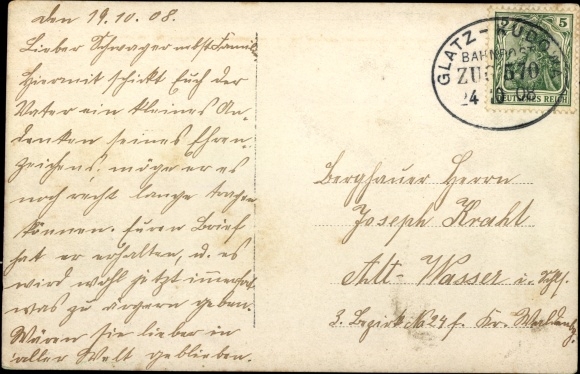 den 19.10.08.
Lieber Schwager nebst Familie
Hiermit schickt Euch der
Vater ein kleines An-
denken seines Ehren-
zeichens, möge er es
noch recht lange tragen
können. Euren Brief
hat er erhalten, u. es
wird wohl jetzt immerhin
was zu ärgern geben.
Wären sie lieber in
aller Welt geblieben.
GLATZ - KUDOWA
BAHNPOST
ZUG 570
24 10 08
5
DEUTSCHES REICH
Berghauer Herrn
Joseph Krahl
Alt-Wasser i. Schl.
3. Bezirk No 24 f. Kr. Waldenbg.